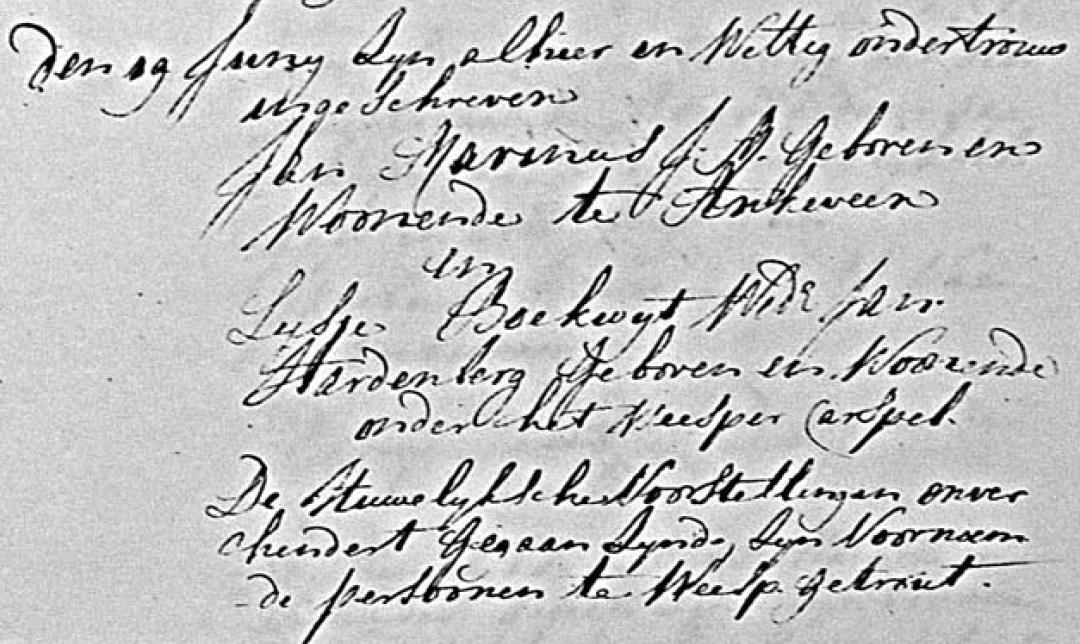 Den 19 Juny Syn alhier in Wettig ondertrouw
ingeschreven
Jan Marinus J: M. Geboren en
Woonende te Ankeveen
en
Lysje Boekweyt Wede Jan
Hardenberg Geboren en Woonende
onder het Weesper Carspel.
De Huwelyksche Voorstellingen onver
hindert Gegaan Synde, Syn Voornoem
de persoonen te Weesp getrout.